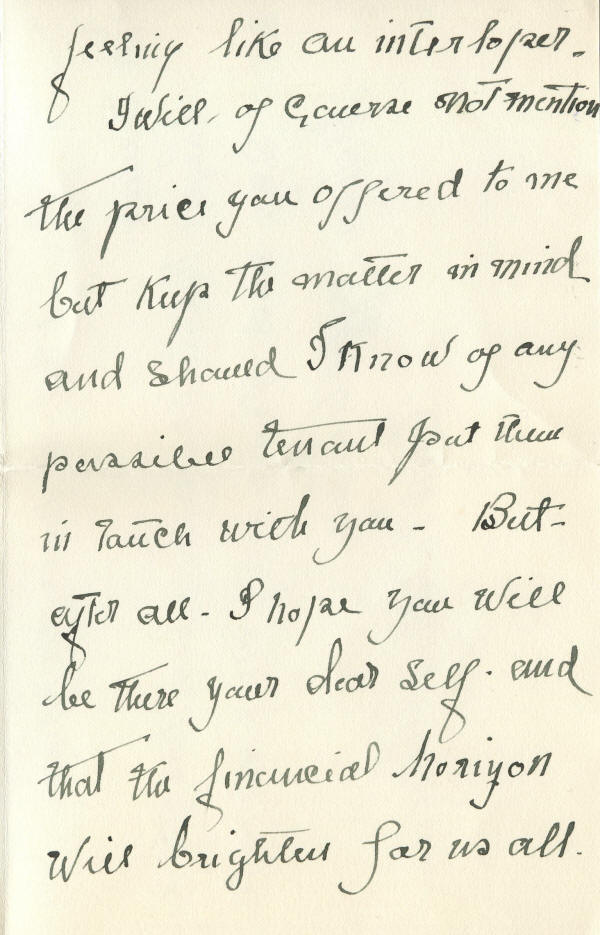 feeling like an interloper.
I will, of course not mention
the price you offered to me
but keep the matter in mind
and should I know of any
possible tenant put them
in touch with you - But -
after all - I hope you will
be there your dear self. and
that the financial horizon
will brighten for us all.